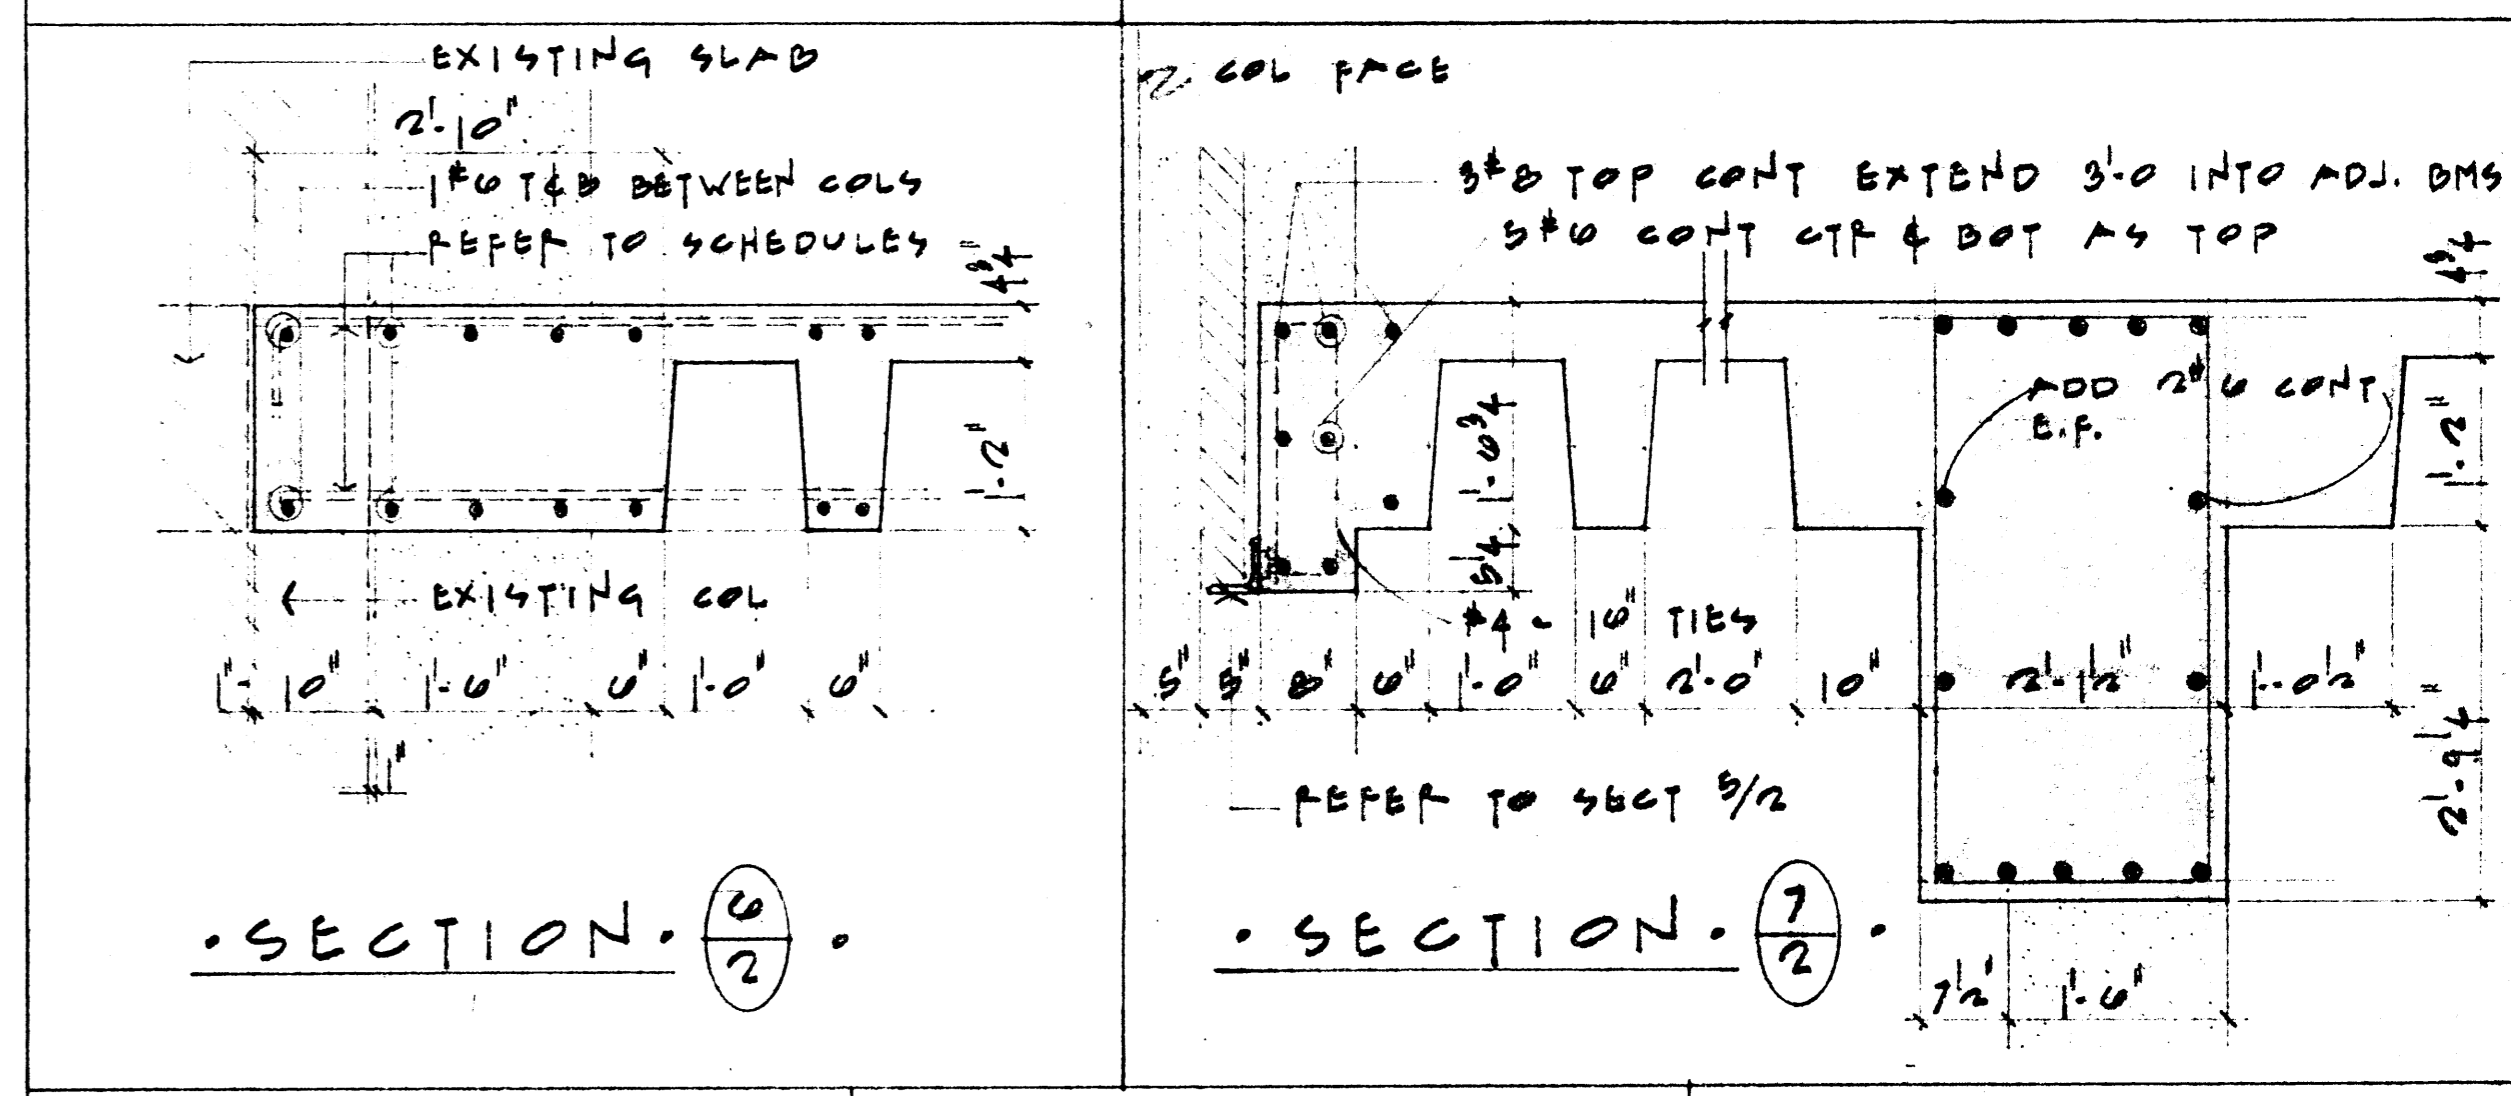 EXISTING SLAB
2'-10"
1#6 T&B BETWEEN COLS
REFER TO SCHEDULES
4 3/4"
1'-2"
EXISTING COL
1" 10" 1'-6" 6" 1'-0" 6"
1"
·SECTION· 6/2 ·
COL FACE
3#8 TOP CONT EXTEND 3'-0 INTO ADJ. BMS
5#6 CONT CTR & BOT AS TOP
4 3/4
ADD 2#6 CONT
E.F.
1'-6 3/4
5 1/4
1'-2"
#4 - 16" TIES
5" 3" 8" 6" 1'-0" 6" 2'-0" 10" 2'-1 1/2" 1'-0 1/2"
2'-9 1/4"
REFER TO SECT 5/2
·SECTION· 7/2 ·
7 1/2" 1'-6"